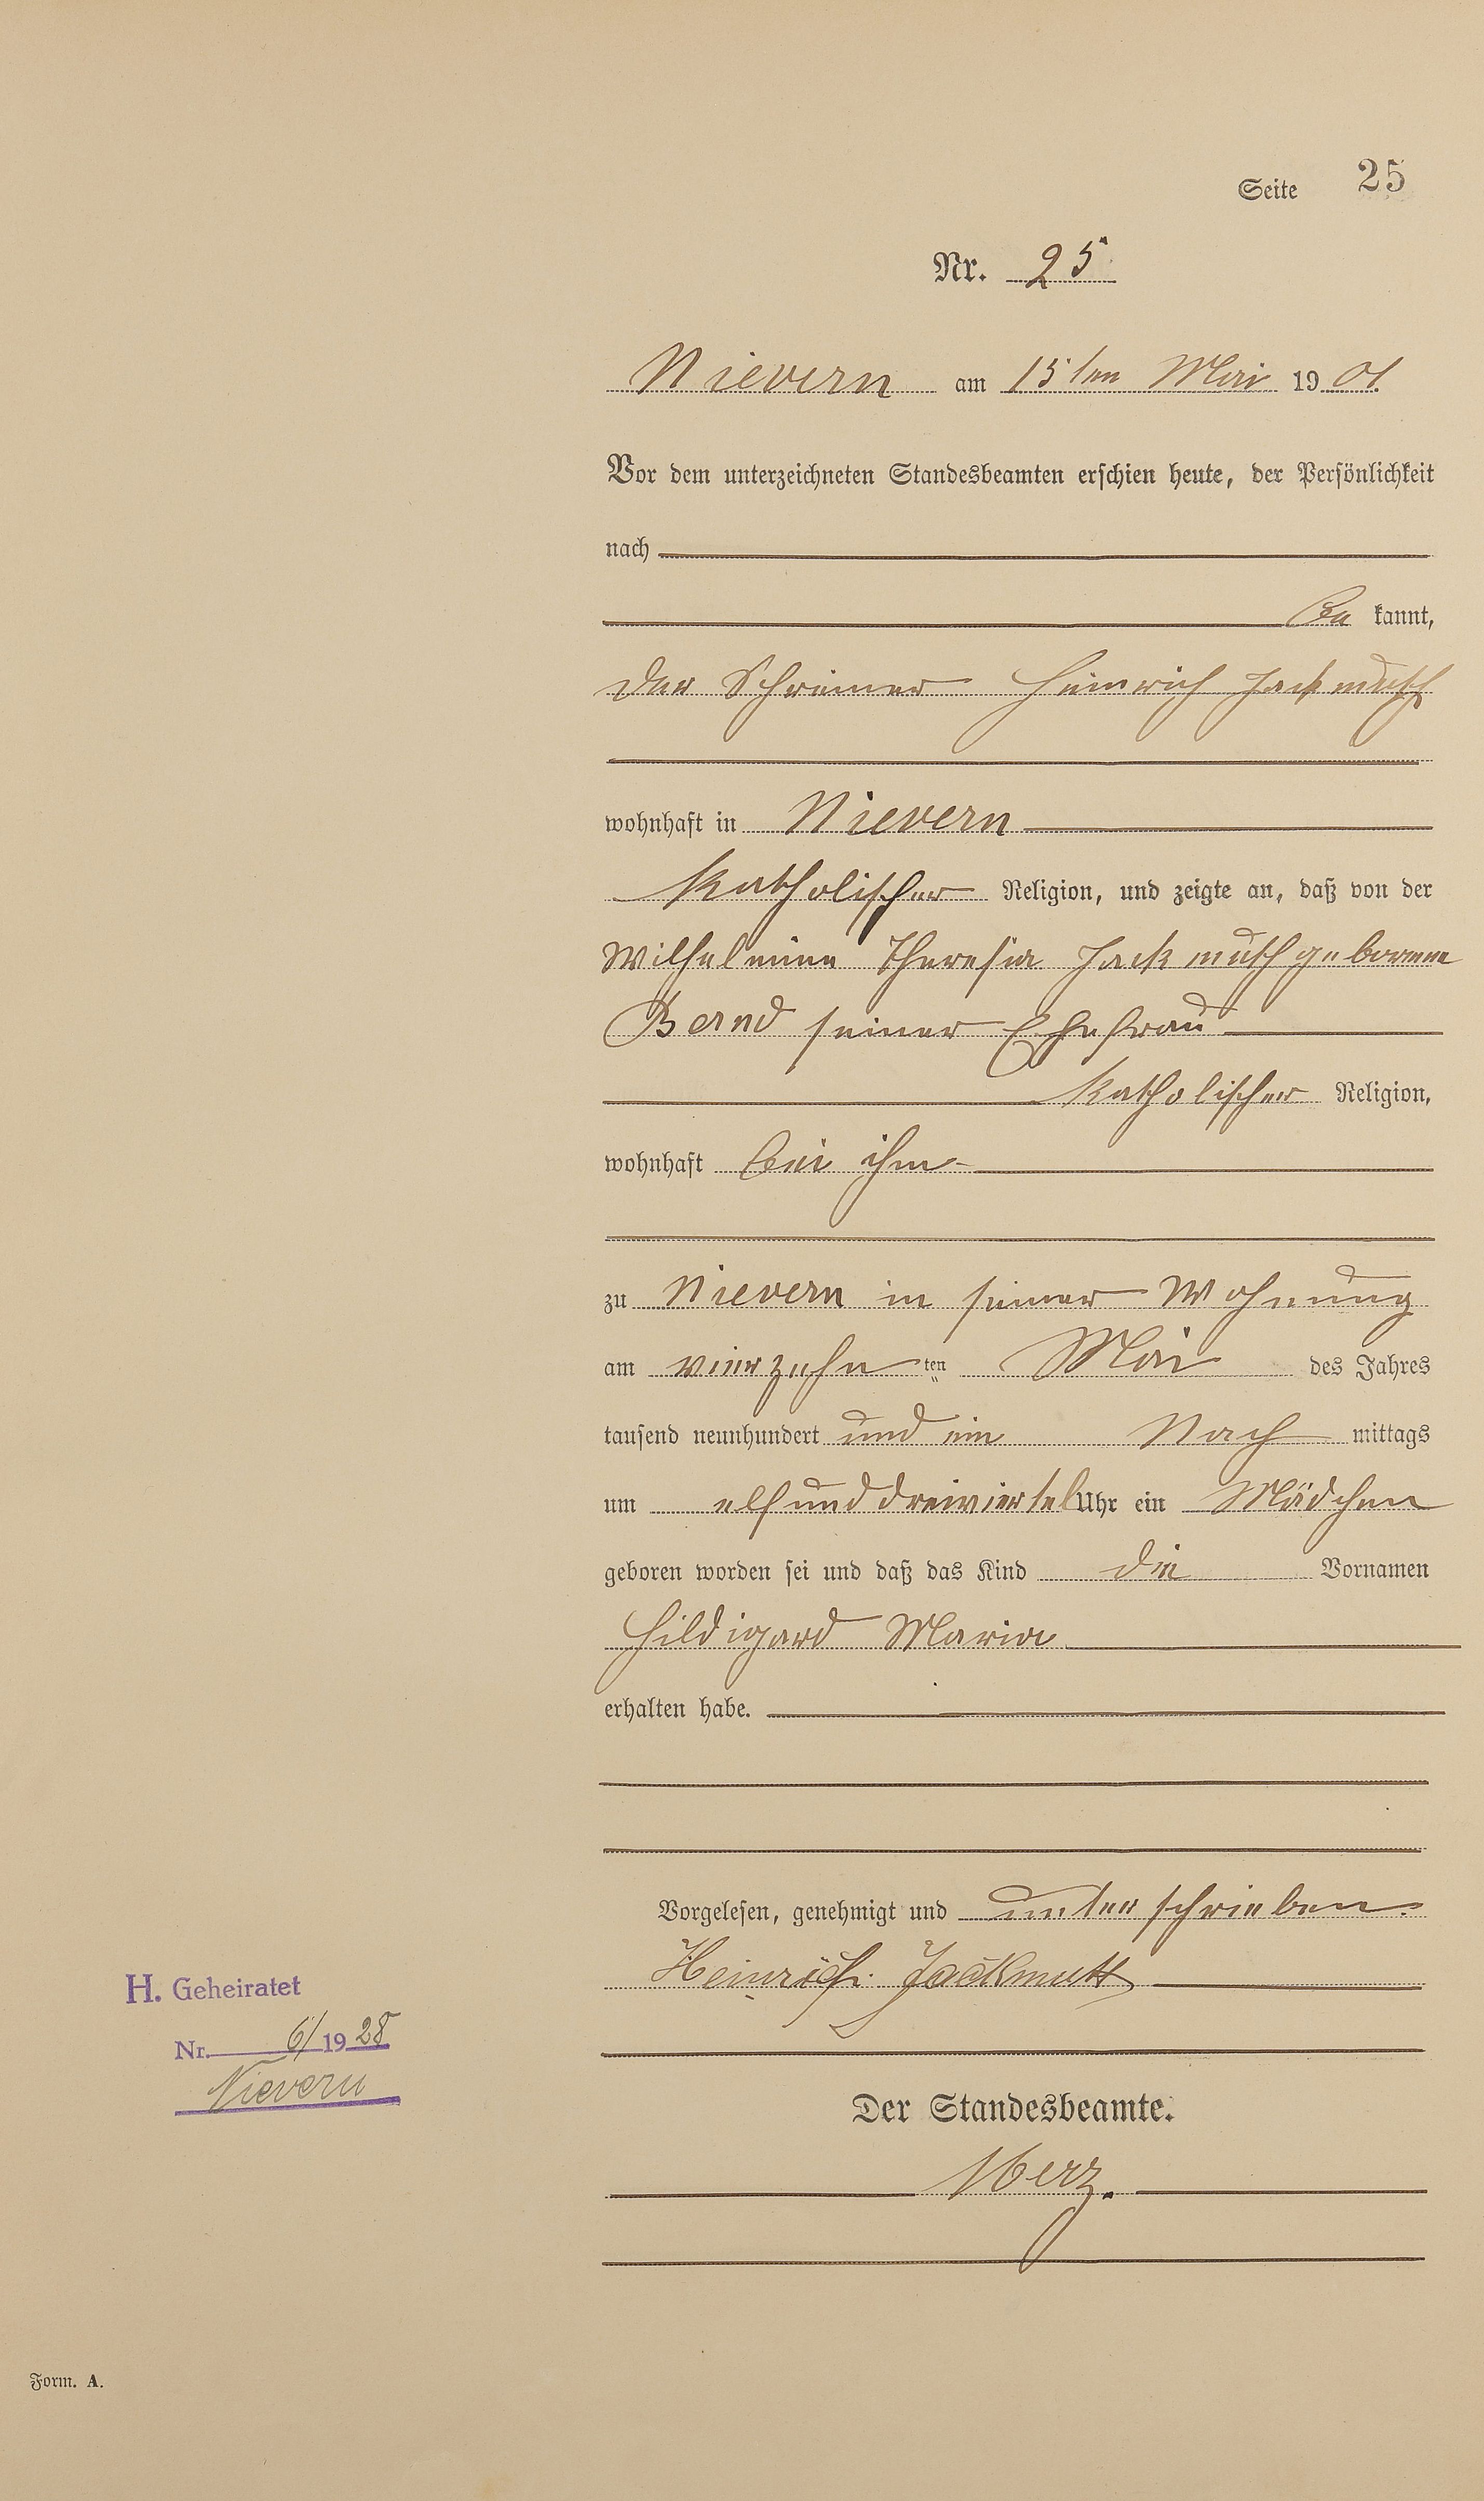 Seite 25
Nr. 25
Nievern am 15ten Mai 1901
Vor dem unterzeichneten Standesbeamten erschien heute, der Persönlichkeit
nach
be kannt,
der Schreiner Heinrich Jackmuth
wohnhaft in Nievern
katholischer Religion, und zeigte an, daß von der
Wilhelmine Theresia Jackmuth geborene
Bernd seiner Ehefrau
katholischer Religion,
wohnhaft bei ihm
zu Nievern in seiner Wohnung
am vierzehn ten Mai des Jahres
tausend neunhundert und ein Nach mittags
um elf und dreiviertel Uhr ein Mädchen
geboren worden sei und daß das Kind die Vornamen
Hildigard Maria
erhalten habe.
Vorgelesen, genehmigt und unterschrieben.
Heinrich Jackmuth
H. Geheiratet
Nr. 6/1928
Nievern
Der Standesbeamte.
Merz.
Form. A.